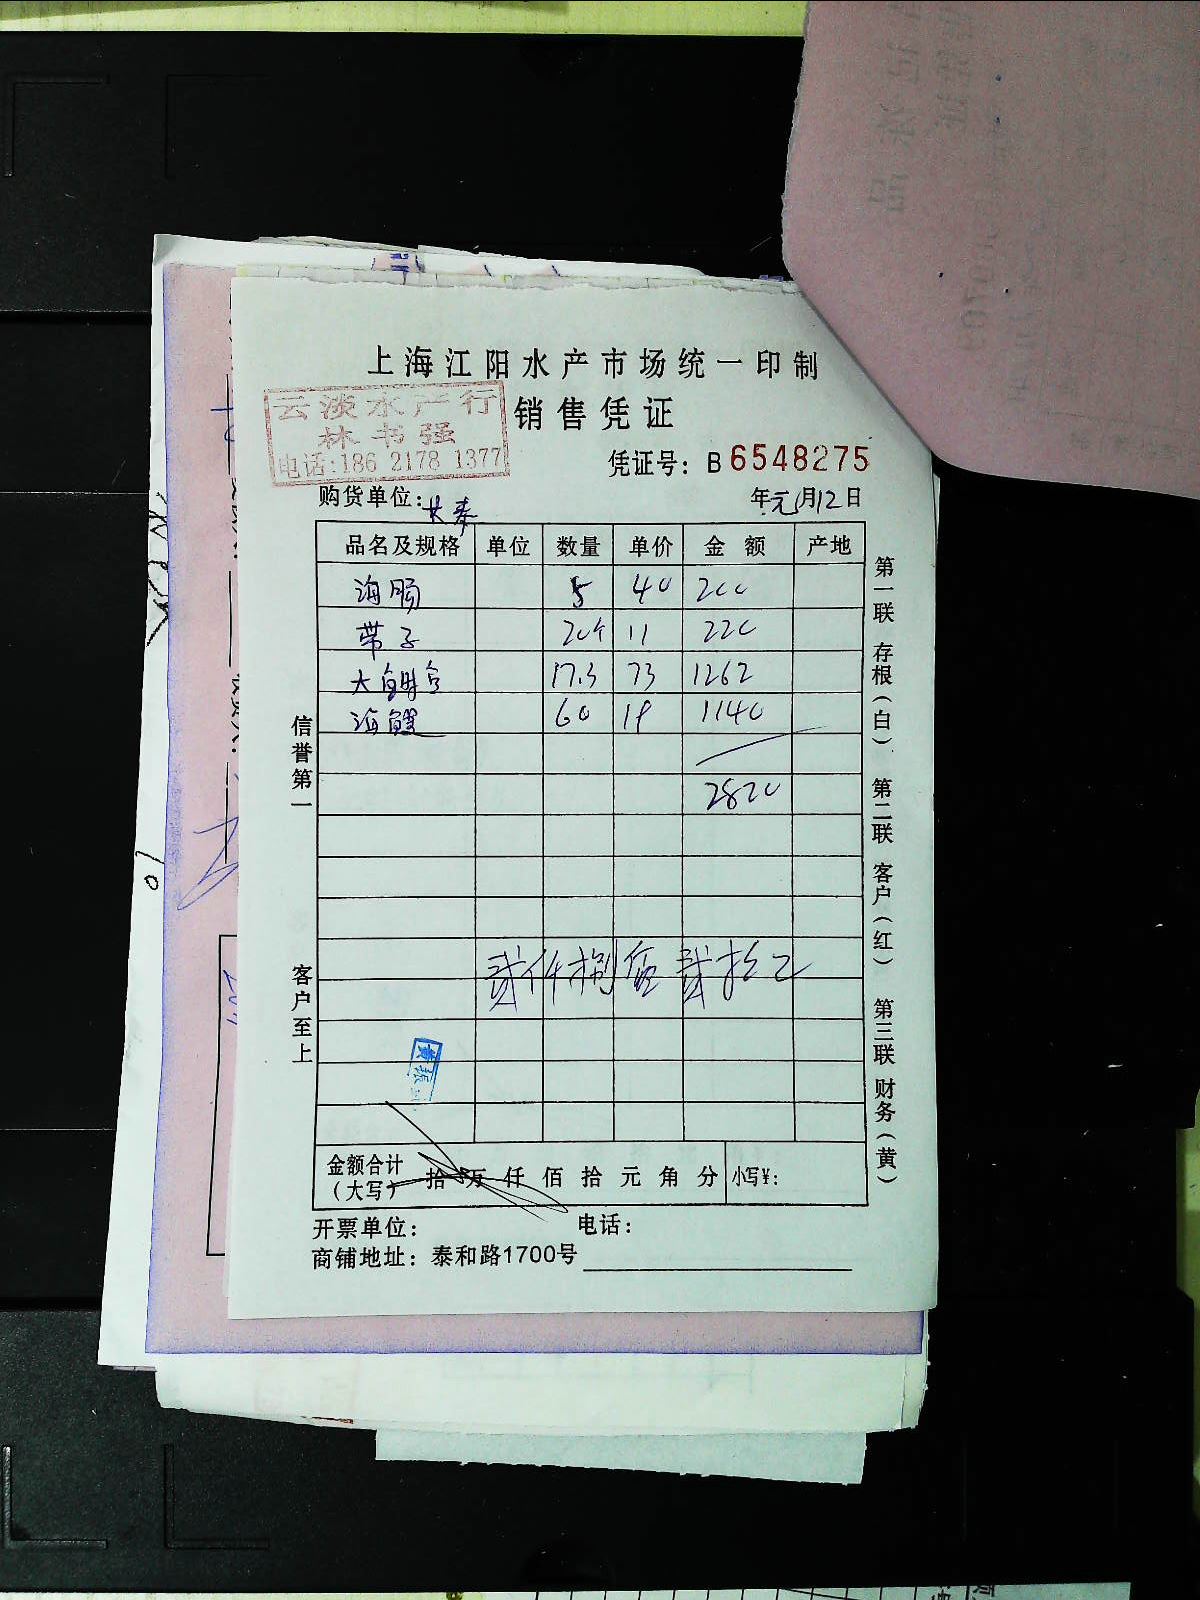 上海江阳水产市场统一印制
销售凭证
云淡水产行
林书强
电话:186 2178 1377
凭证号: B 6548275
购货单位:
年元月12日
品名及规格 单位 数量 单价 金额 产地
海肠 5 40 200
带子 20个 11 220
17.3 73 1262
海鳗 60 19 1140
2820
贰仟捌佰贰拾元
金额合计(大写) 拾万仟佰拾元角分 小写¥:
开票单位: 电话:
商铺地址: 泰和路1700号
信誉第一
客户至上
第一联 存根(白) 第二联 客户(红) 第三联 财务(黄)